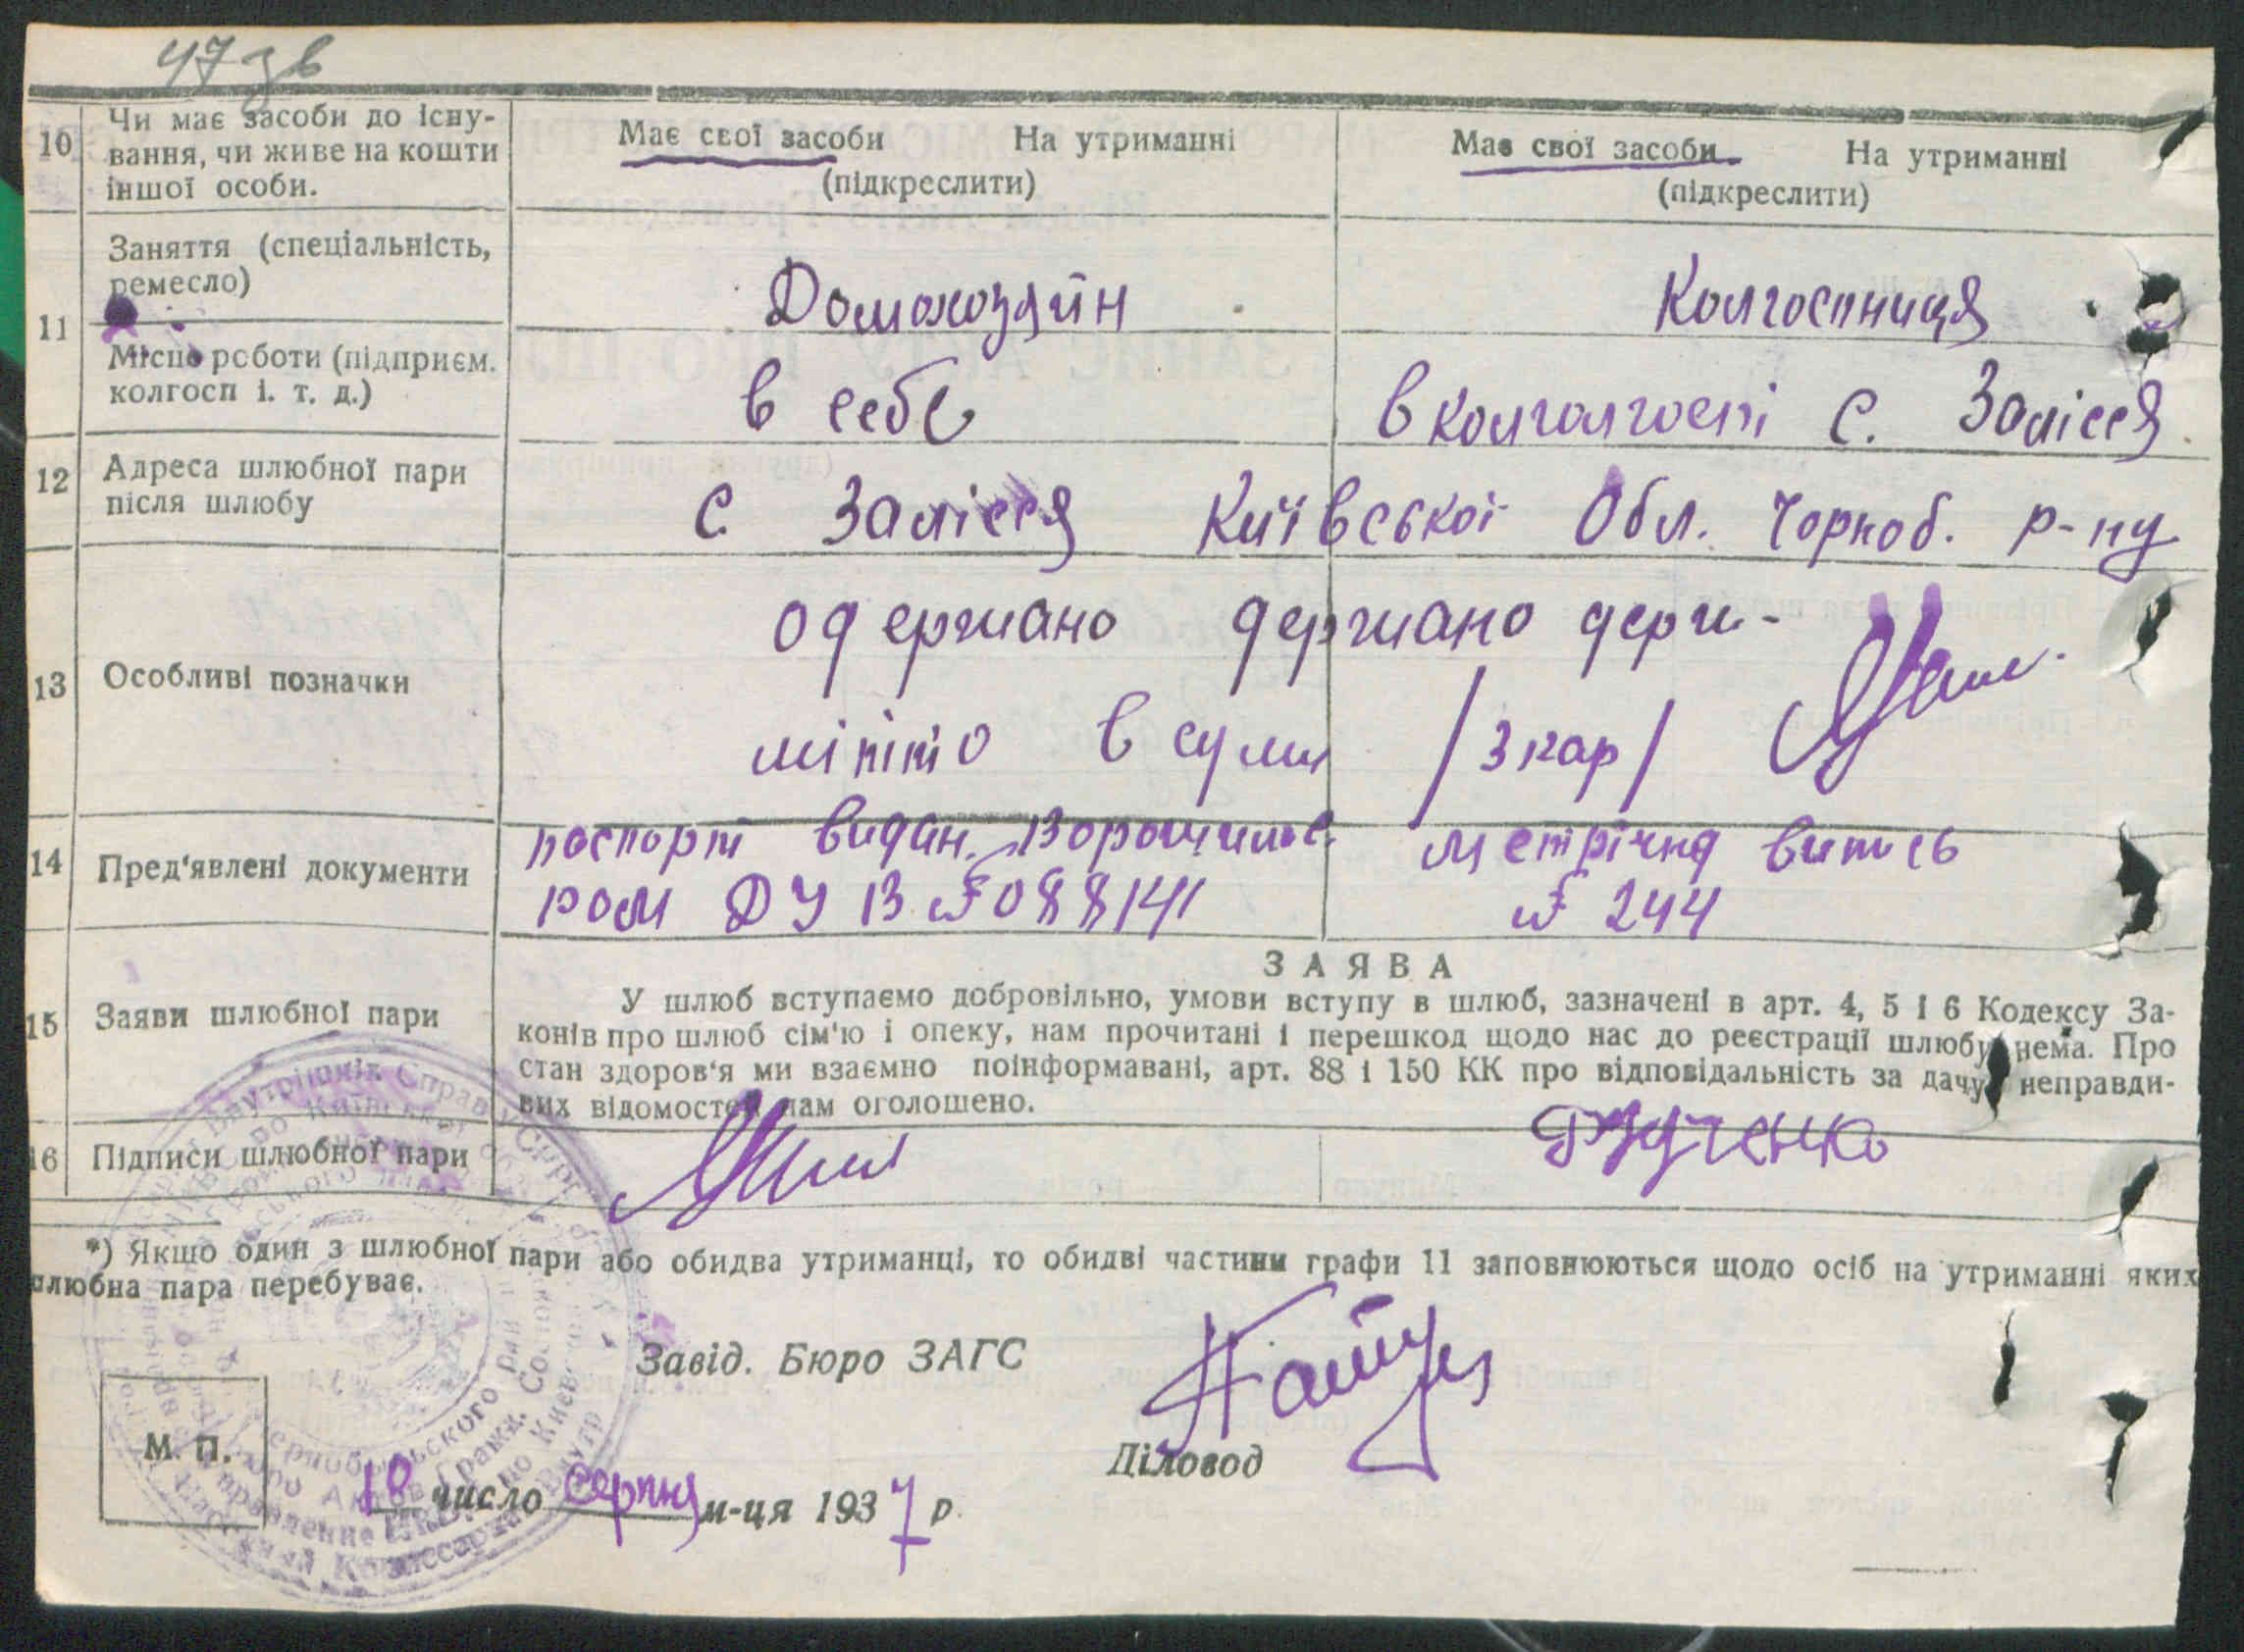 47 зв
10 Чи має засоби до існу-
вання, чи живе на кошти
іншої особи.
Має свої засоби На утриманні
(підкреслити)
Має свої засоби На утриманні
(підкреслити)
11 Заняття (спеціальність,
ремесло)
Домохозяйн
Колгоспниця
Місце роботи (підприєм.
колгосп і. т. д.)
в себе
в колголгоспі с. Залісся
12 Адреса шлюбної пари
після шлюбу
с. Залісся Київської Обл. Чорноб. р-ну
13 Особливі позначки
одержано держано держ-
міто в сумі /3 кар/
14 Пред'явлені документи
паспорт видан. Ворошилов.
ром ДУ В № 088141
метрічна випись
№ 244
15 Заяви шлюбної пари
ЗАЯВА
У шлюб вступаємо добровільно, умови вступу в шлюб, зазначені в арт. 4, 5 і 6 Кодексу За-
конів про шлюб сім'ю і опеку, нам прочитані і перешкод щодо нас до реєстрації шлюбу нема. Про
стан здоров'я ми взаємно поінформавані, арт. 88 і 150 КК про відповідальність за дачу неправди-
вих відомостей нам оголошено.
16 Підписи шлюбної пари
*) Якщо один з шлюбної пари або обидва утриманці, то обидві частини графи 11 заповнюються щодо осіб на утриманні яких
шлюбна пара перебуває.
Завід. Бюро ЗАГС
Діловод
М. П.
10 число серпня м-ця 1937 р.